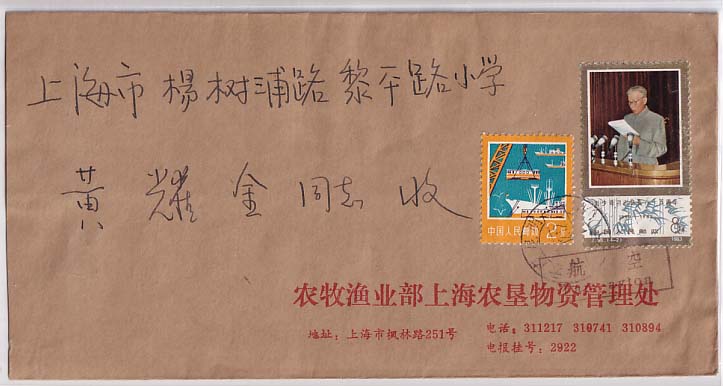 上海市楊树浦路黎平路小学
黄耀金同志收
中国人民邮政 2分
航空
农牧渔业部上海农垦物资管理处
地址：上海市枫林路251号
电话：311217 310741 310894
电报挂号：2922